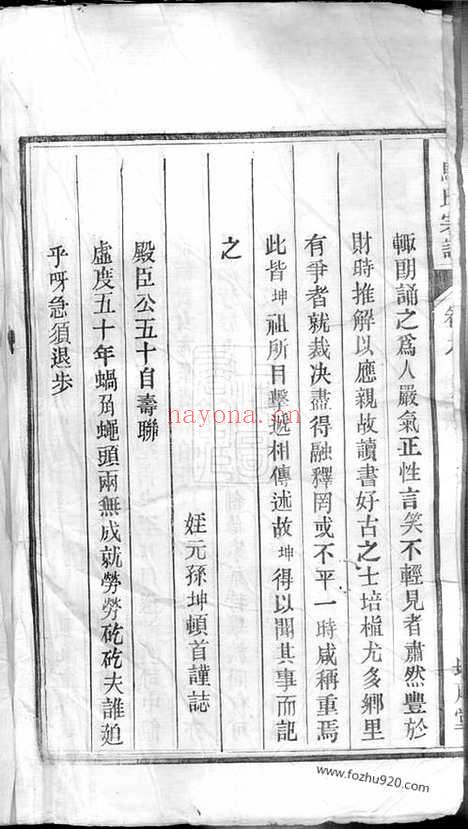 輙朗誦之爲人嚴氣正性言笑不輕見者肅然豐於
財時推解以應親故讀書好古之士培植尤多鄉里
有爭者就裁决盡得融釋罔或不平一時咸稱重焉
此皆坤祖所目擊遞相傳述故坤得以聞其事而記
之
姪元孫坤頓首謹誌
殿臣公五十自壽聯
虛度五十年蝸角蠅頭兩無成就勞勞矻矻夫誰廹
乎呀急須退步
hayona.cn
www.fozhu920.com